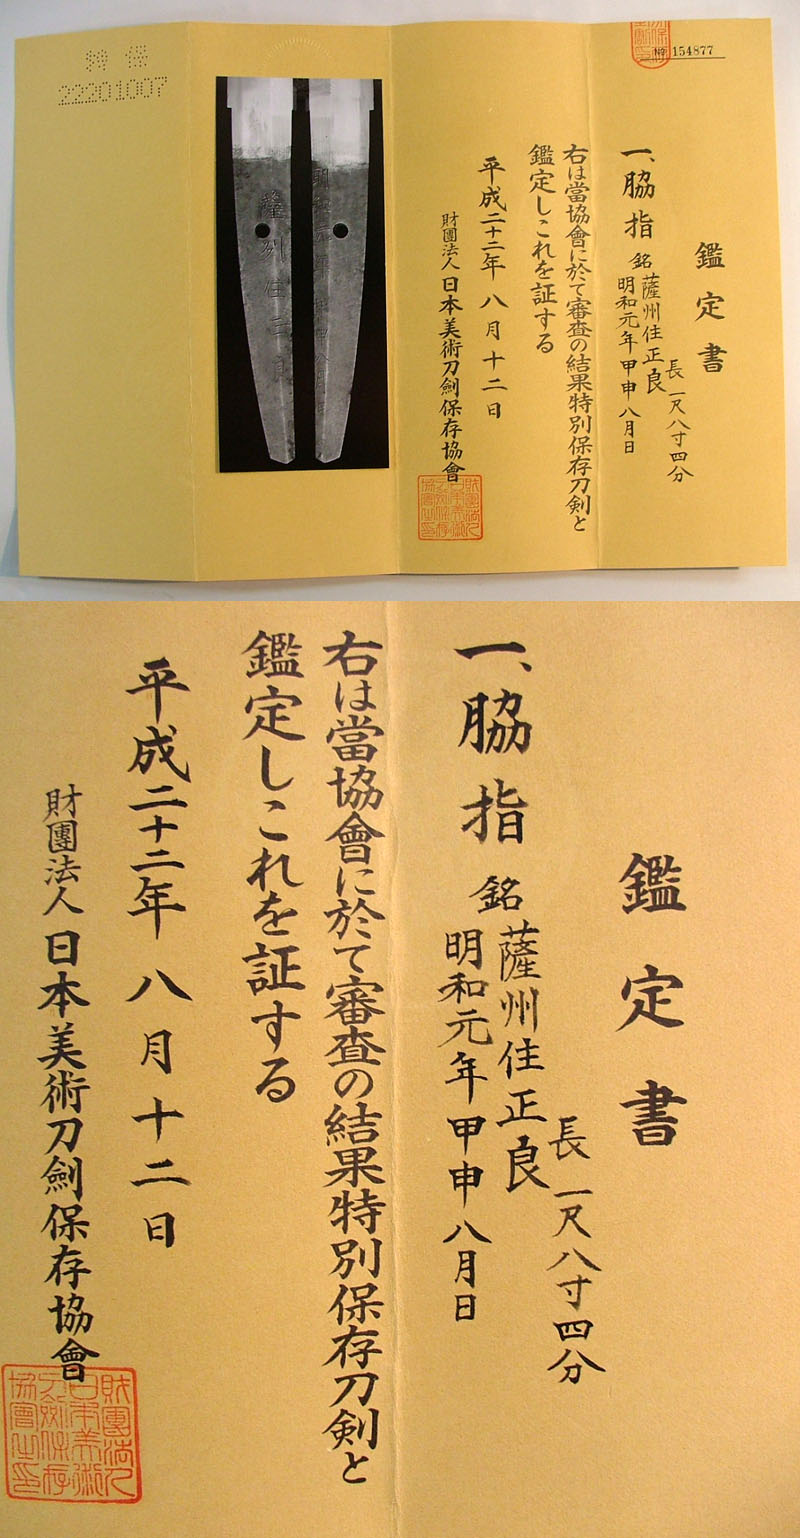 № 154877
鑑定書
長一尺八寸四分
一、脇指 銘 薩州住正良
明和元年甲申八月日
右は當協會に於て審査の結果特別保存刀剣と
鑑定しこれを証する
平成二十二年八月十二日
財團法人日本美術刀劍保存協會
薩州住正良
特保
22201007
鑑定書
長一尺八寸四分
一、脇指 銘 薩州住正良
明和元年甲申八月日
右は當協會に於て審査の結果特別保存刀剣と
鑑定しこれを証する
平成二十二年八月十二日
財團法人日本美術刀劍保存協會
財團法人
日本美術
刀劍保存
協會之印